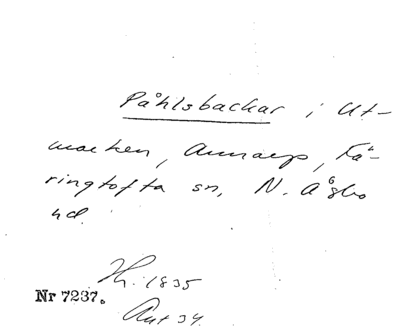 Påhlsbackar i Ut-
marken, Annarp, Fä-
ringtofta sn, N. Åsbo
hd.
H. 1835
Nr 7237.
Ant 34.